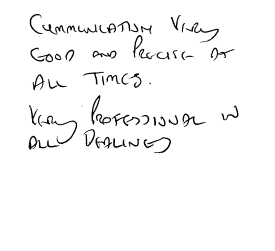 Communication Very
Good and Precise at
All Times.
Very Professional in
all Dealings